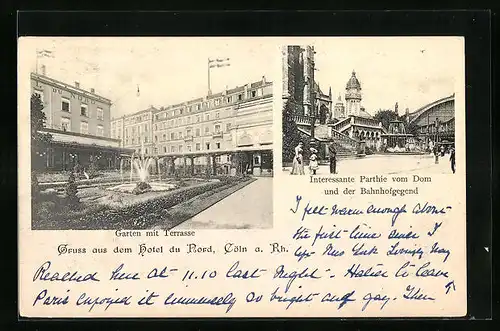 Garten mit Terrasse
Interessante Parthie vom Dom
und der Bahnhofgegend
Gruss aus dem Hotel du Nord, Cöln a. Rh.
I felt warm enough
the first time since I
left
Reached here at 11.10 last Night - to leave
Paris enjoyed it immensely so bright and gay. Then